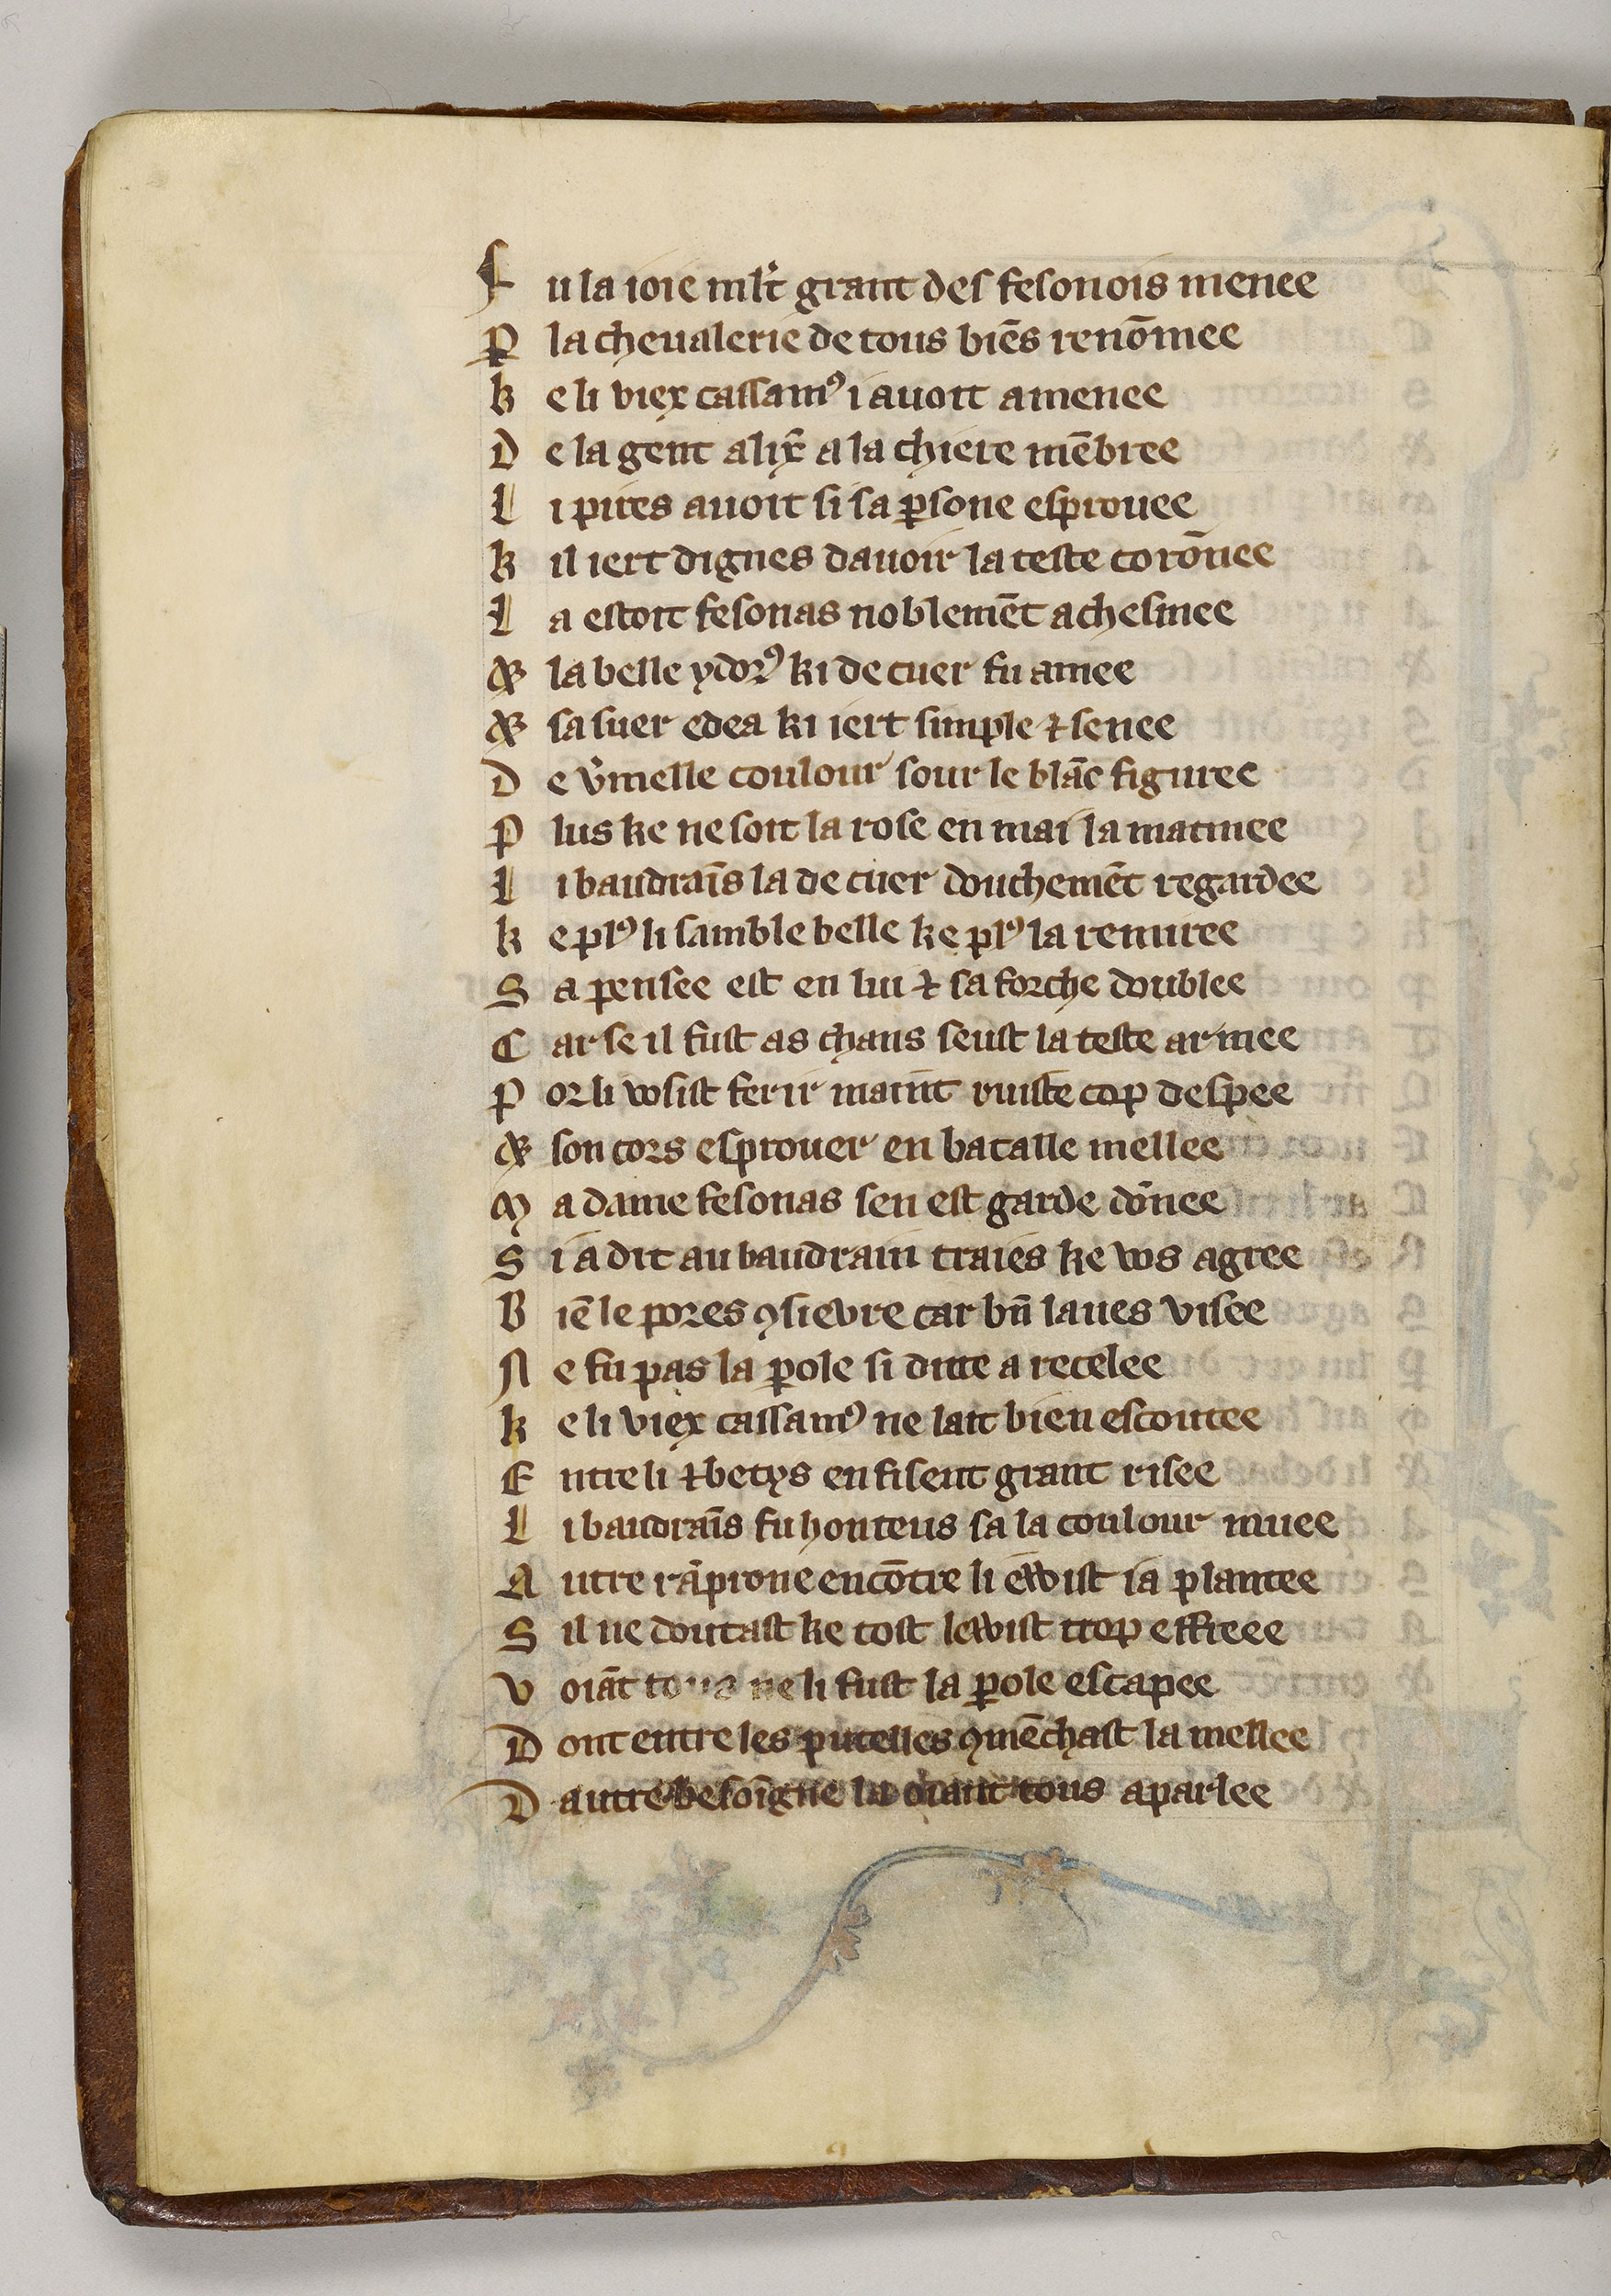 F u la ioie ml̃t grant des fesonois menee
ꝑ la cheualerie de tous biẽs renõmee
k e li viex cassamꝰ i auoit amenee
D e la gent alix̃ a la chiere mẽbree
L i pires auoit si sa ꝑsone esprouee
k il iert dignes dauoir la teste corõnee
L a estoit fesonas noblemẽt achesmee
⁊ la belle ydorꝰ ki de cuer fu amee
⁊ sa suer edea ki iert simple ⁊ senee
D e v̾melle coulour sour le blãc figuree
P lus ke ne soit la rose en mai la matinee
L i baudraĩs la de cuer douchemẽt regardee
k e plꝰ li samble belle ke plꝰ la remiree
S a pensee est en lui ⁊ sa forche doublee
C ar se il fust as chans seust la teste armee
P or li vosist ferir maint ruiste cop despee
⁊ son cors esprouer en bataille mellee
M a dame fesonas sen est garde dõnee
S i a dit au baudrain traies ke vos agree
B iẽ le pores ꝯsieure car bñ laues visee
N e fu pas la ꝑole si dite a recelee
k e li viex cassamꝰ ne lait bien escoutee
E ntre li ⁊ betys en fisent grant risee
L i baudraĩs fu honteus sa la coulour muee
A utre rãprone encõtre li ewist ia plantee
S il ne doutast ke tost lewist trop effreee
V oiãt tous ne li fust la ꝑole escapee
D ont entre les pucelles ꝯmẽchast la mellee
D autre besoigne la oiant tous aparlee